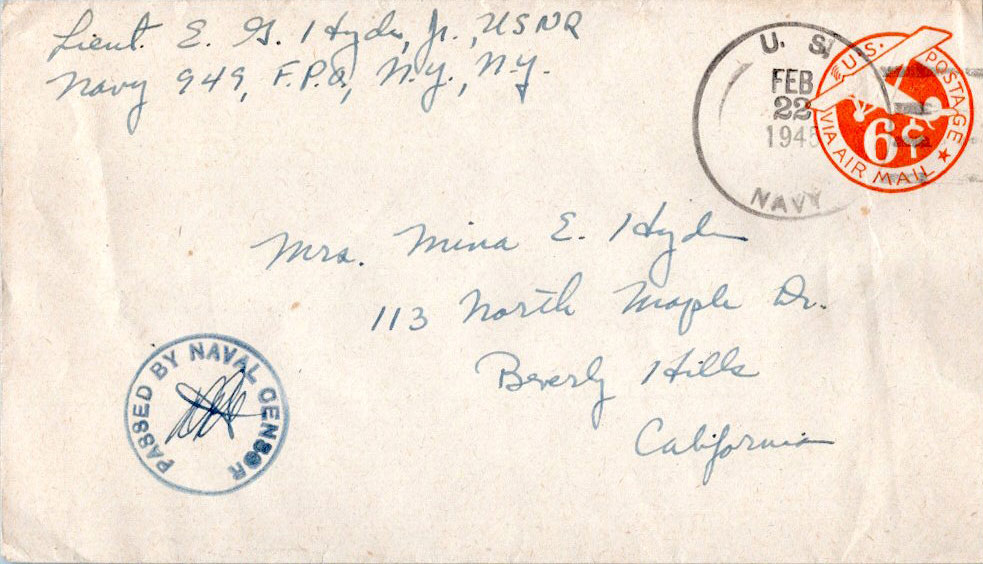 Lieut. E. G. Hyde, Jr., USNR
Navy 949, F.P.O., N.Y., N.Y.
U. S.
FEB
22
1945
NAVY
U.S. POSTAGE
6¢
VIA AIR MAIL
Mrs. Mina E. Hyde
113 North Maple Dr.
Beverly Hills
California
PASSED BY NAVAL CENSOR